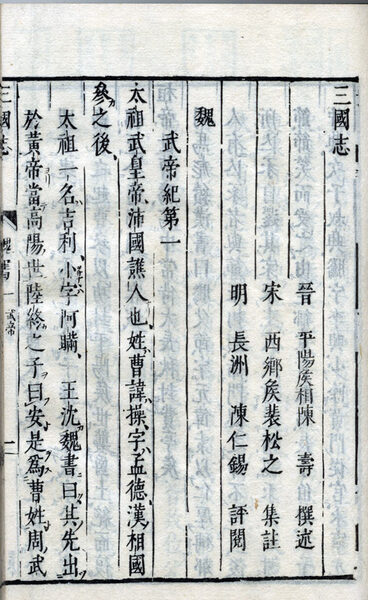 三國志
晉 平陽侯相陳 壽 撰述
宋 西鄉侯裴松之 集註
明 長洲 陳仁錫 評閱
魏
武帝紀第一
太祖武皇帝沛國譙人也姓曹諱操字孟德漢相國
參之後
太祖一名吉利小字阿瞞 王沈魏書曰其先出
於黃帝當高陽世陸終之子曰安是爲曹姓周武
三國志 武帝